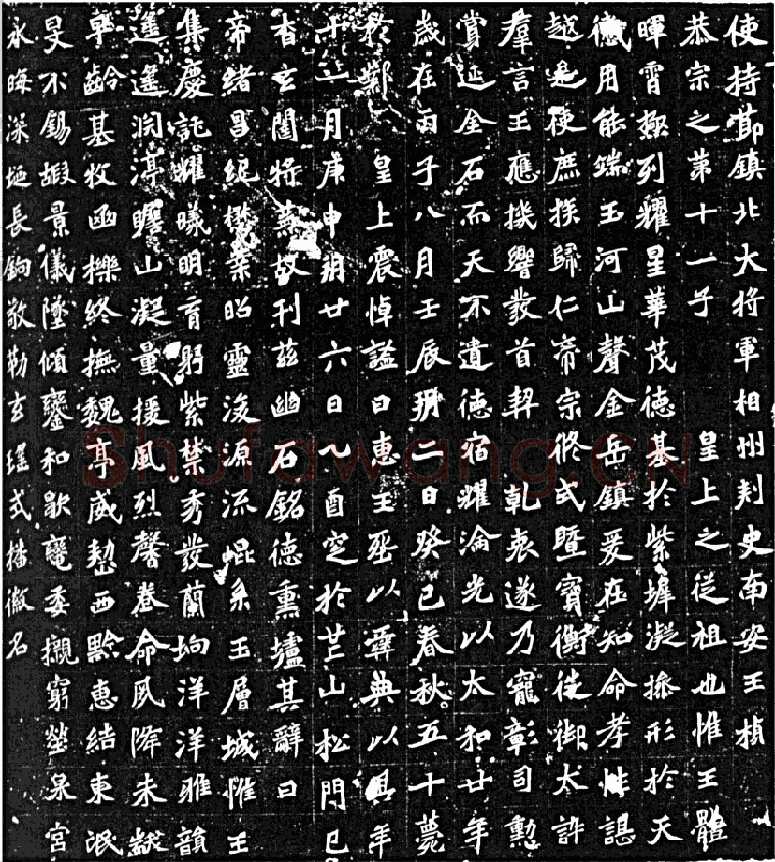 使持節鎮北大將軍相州刺史南安王楨
恭宗之第十一子 皇上之從祖也惟王體
暉霄極列耀星華茂德基於紫墀凝操形於天
儀用能端玉河山聲金岳鎮爰在知命孝性諶
越是使庶族歸仁帝宗攸式暨寶衡徙御太訏
羣言王應機響發首契 乾衷遂乃寵彰司勳
賞延金石而天不遺德宿耀淪光以太和廿年
歲在丙子八月壬辰朔二日癸巳春秋五十薨
於鄴 皇上震悼謚曰惠王葬以彝典以其年
十一月庚申朔廿六日乙酉窆於芒山松門已
杳玄闥將蕪故刊茲幽石銘德熏壚其辭曰
帝緒昌紀懋業昭靈浚源流崐系玉層城惟王
集慶託耀曦明育躬紫禁秀發蘭坰洋洋雅韻
遥遥淵渟瞻山凝量援風烈馨卷命夙降未黻
早齡基牧函櫟終撫魏亭威愬西黔惠結東氓
旻不錫嘏景儀墜傾鑾和歇轊委櫬窮塋泉宮
永晦深埏長鉤敬勒玄瑤式播徽名
Shufawang.CN